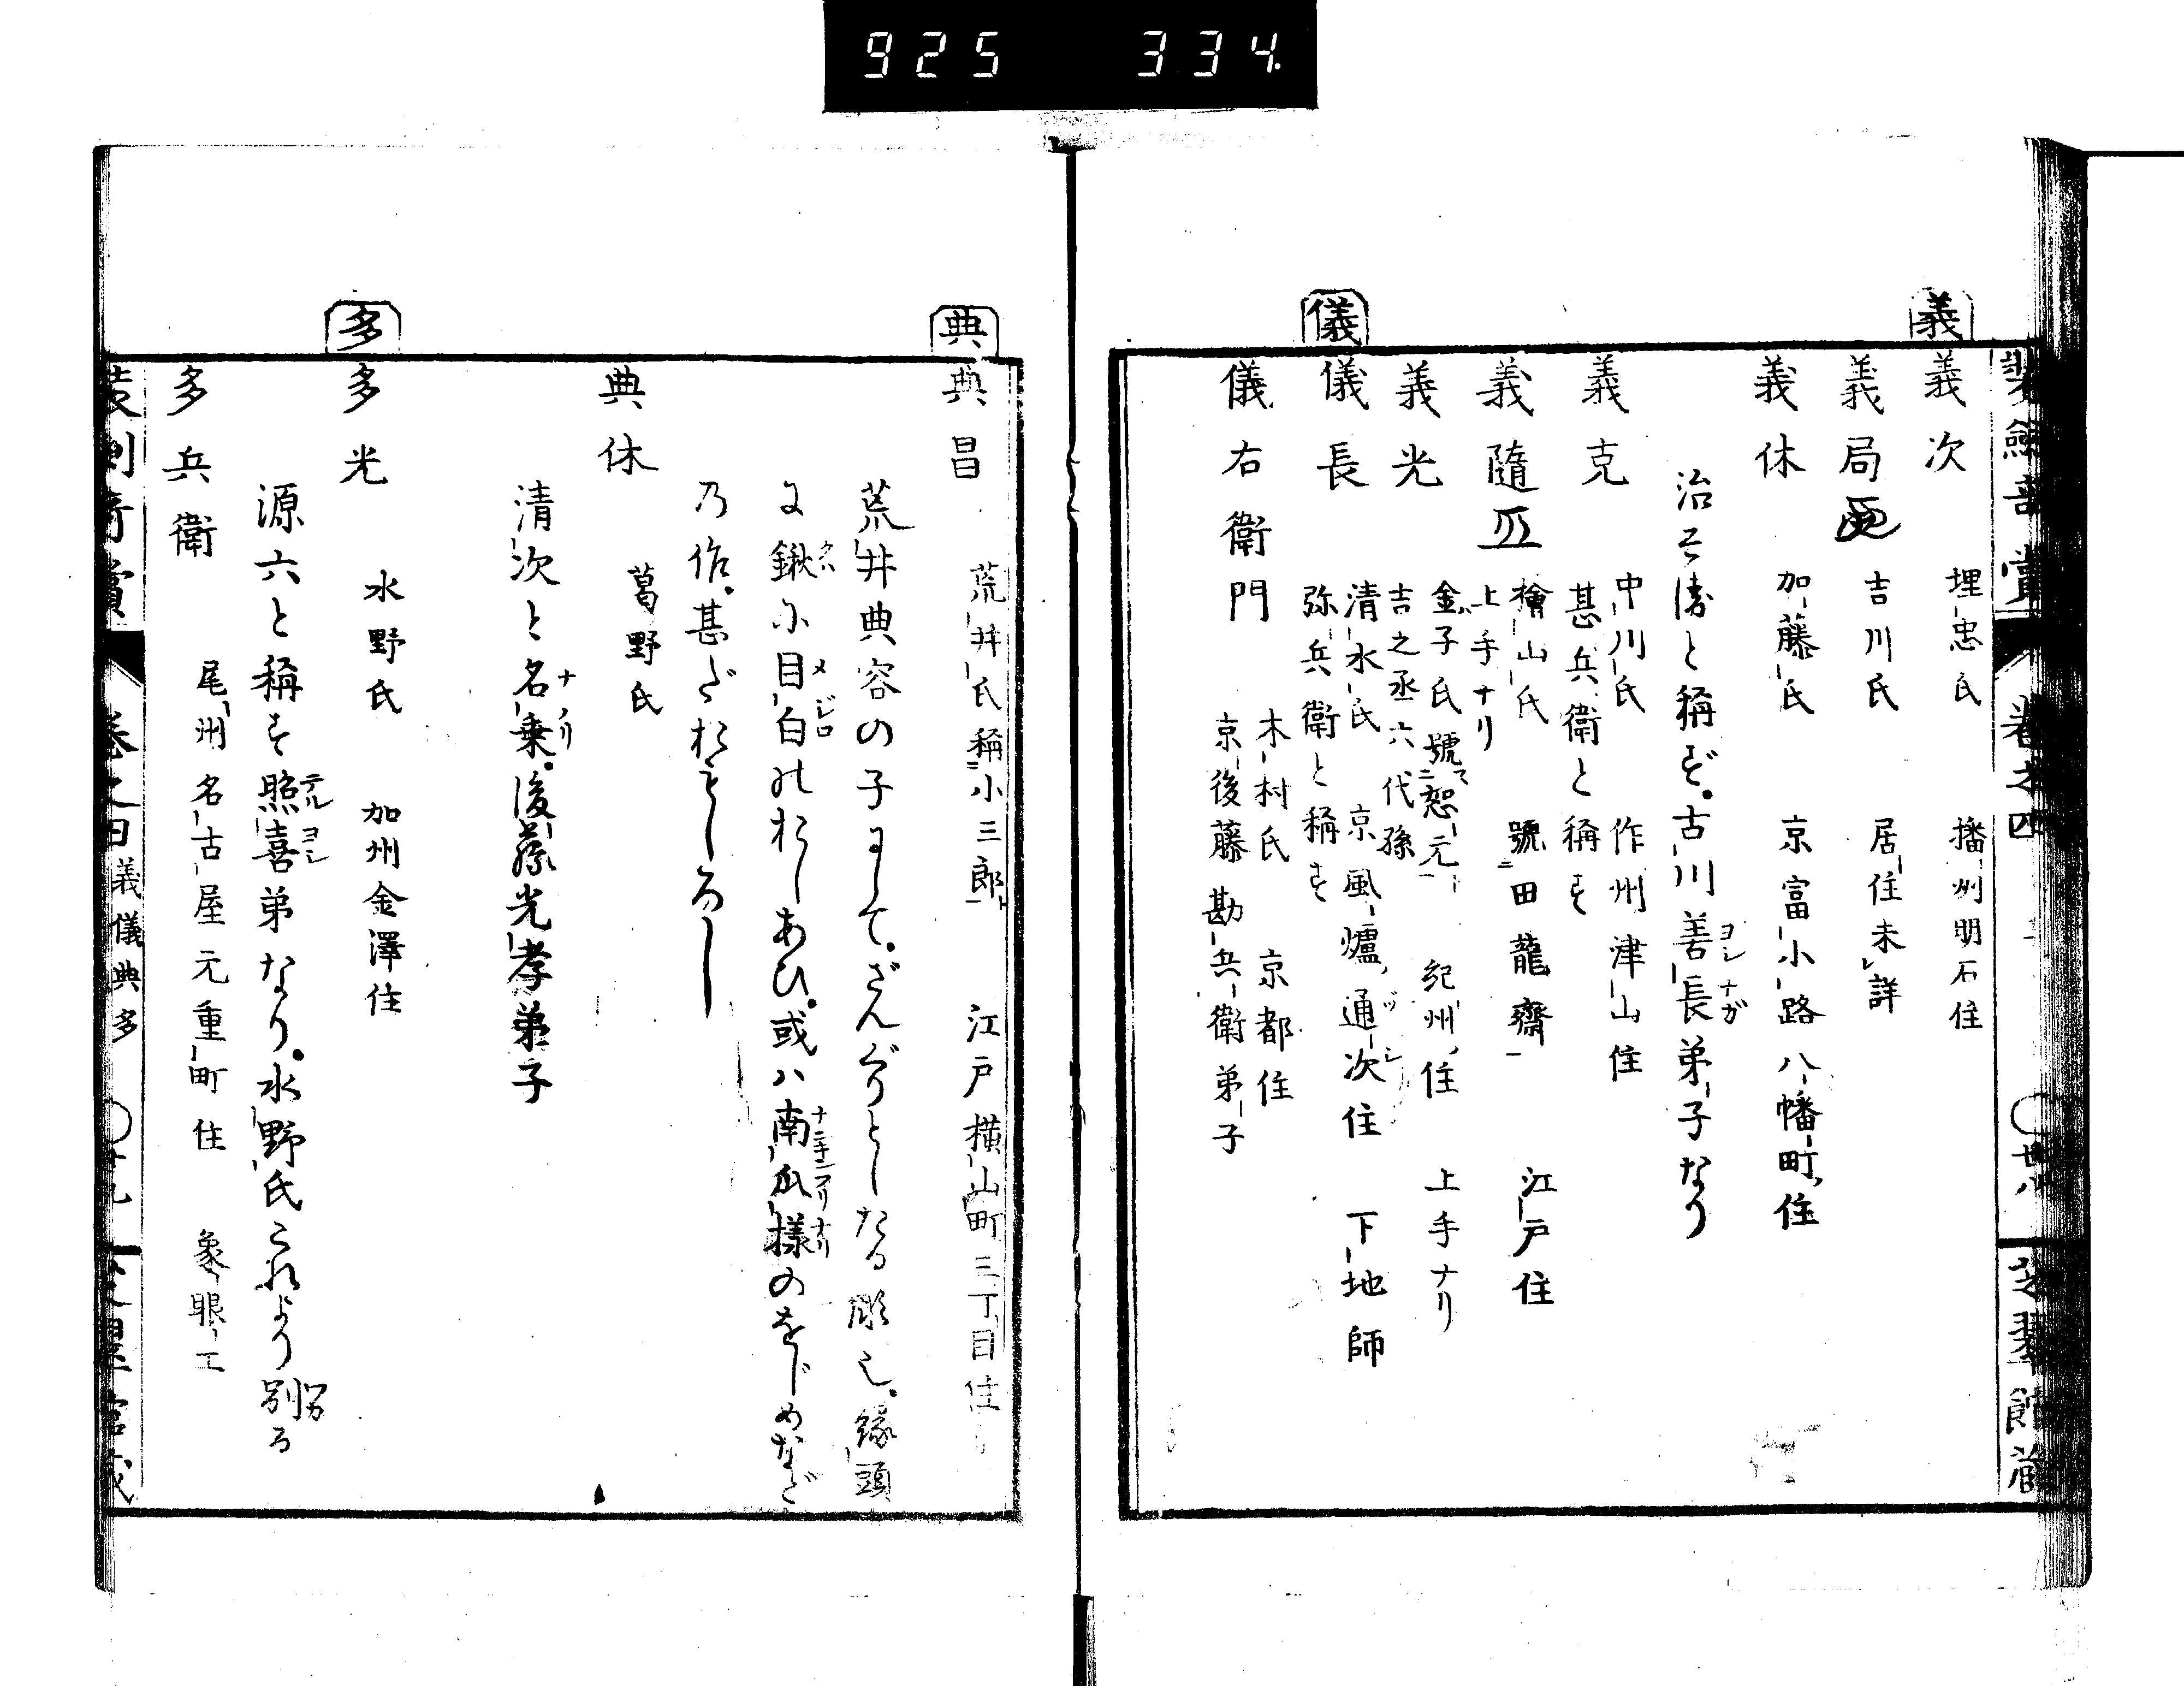 925 334
装劔奇賞 巻之四 〇廿八
義
義次 埋忠氏 播州明石住
義局 吉川氏 居住未詳
義休 加藤氏 京富小路八幡町住
古川善長弟子なり
義克 中川氏 作州津山住
甚兵衛と称す
義随 檜山氏 號田龍齋 江戸住
上手ナリ
義光 金子氏 號恕元 紀州住 上手ナリ
吉之丞六代孫
儀
儀長 清水氏 京風爐通次住 下地師
弥兵衛と稱す
儀右衛門 木村氏 京都住
京後藤勘兵衛弟子
典
典昌 荒井氏稱小三郎 江戸横山町三丁目住
荒井典容の子にして。ざんぐりとしたる彫也。縁頭
に鍬に目白のおしあひ。或ハ南瓜様のをじめなど
乃作。甚だおもしろし
典休 葛野氏
清次と名乗。後藤光孝弟子
多
多光 水野氏 加州金澤住
源六と稱す照喜弟なり。水野氏これより別る
多兵衛 尾州名古屋元重町住 象眼工
装劍奇賞 巻之四 義儀典多